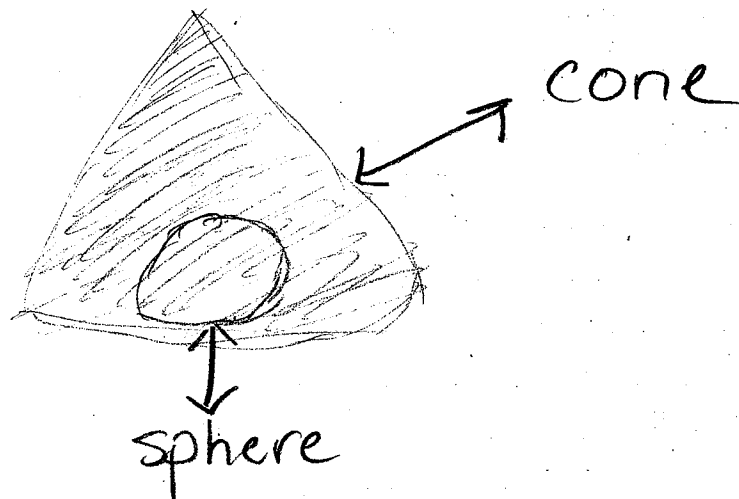 cone
sphere